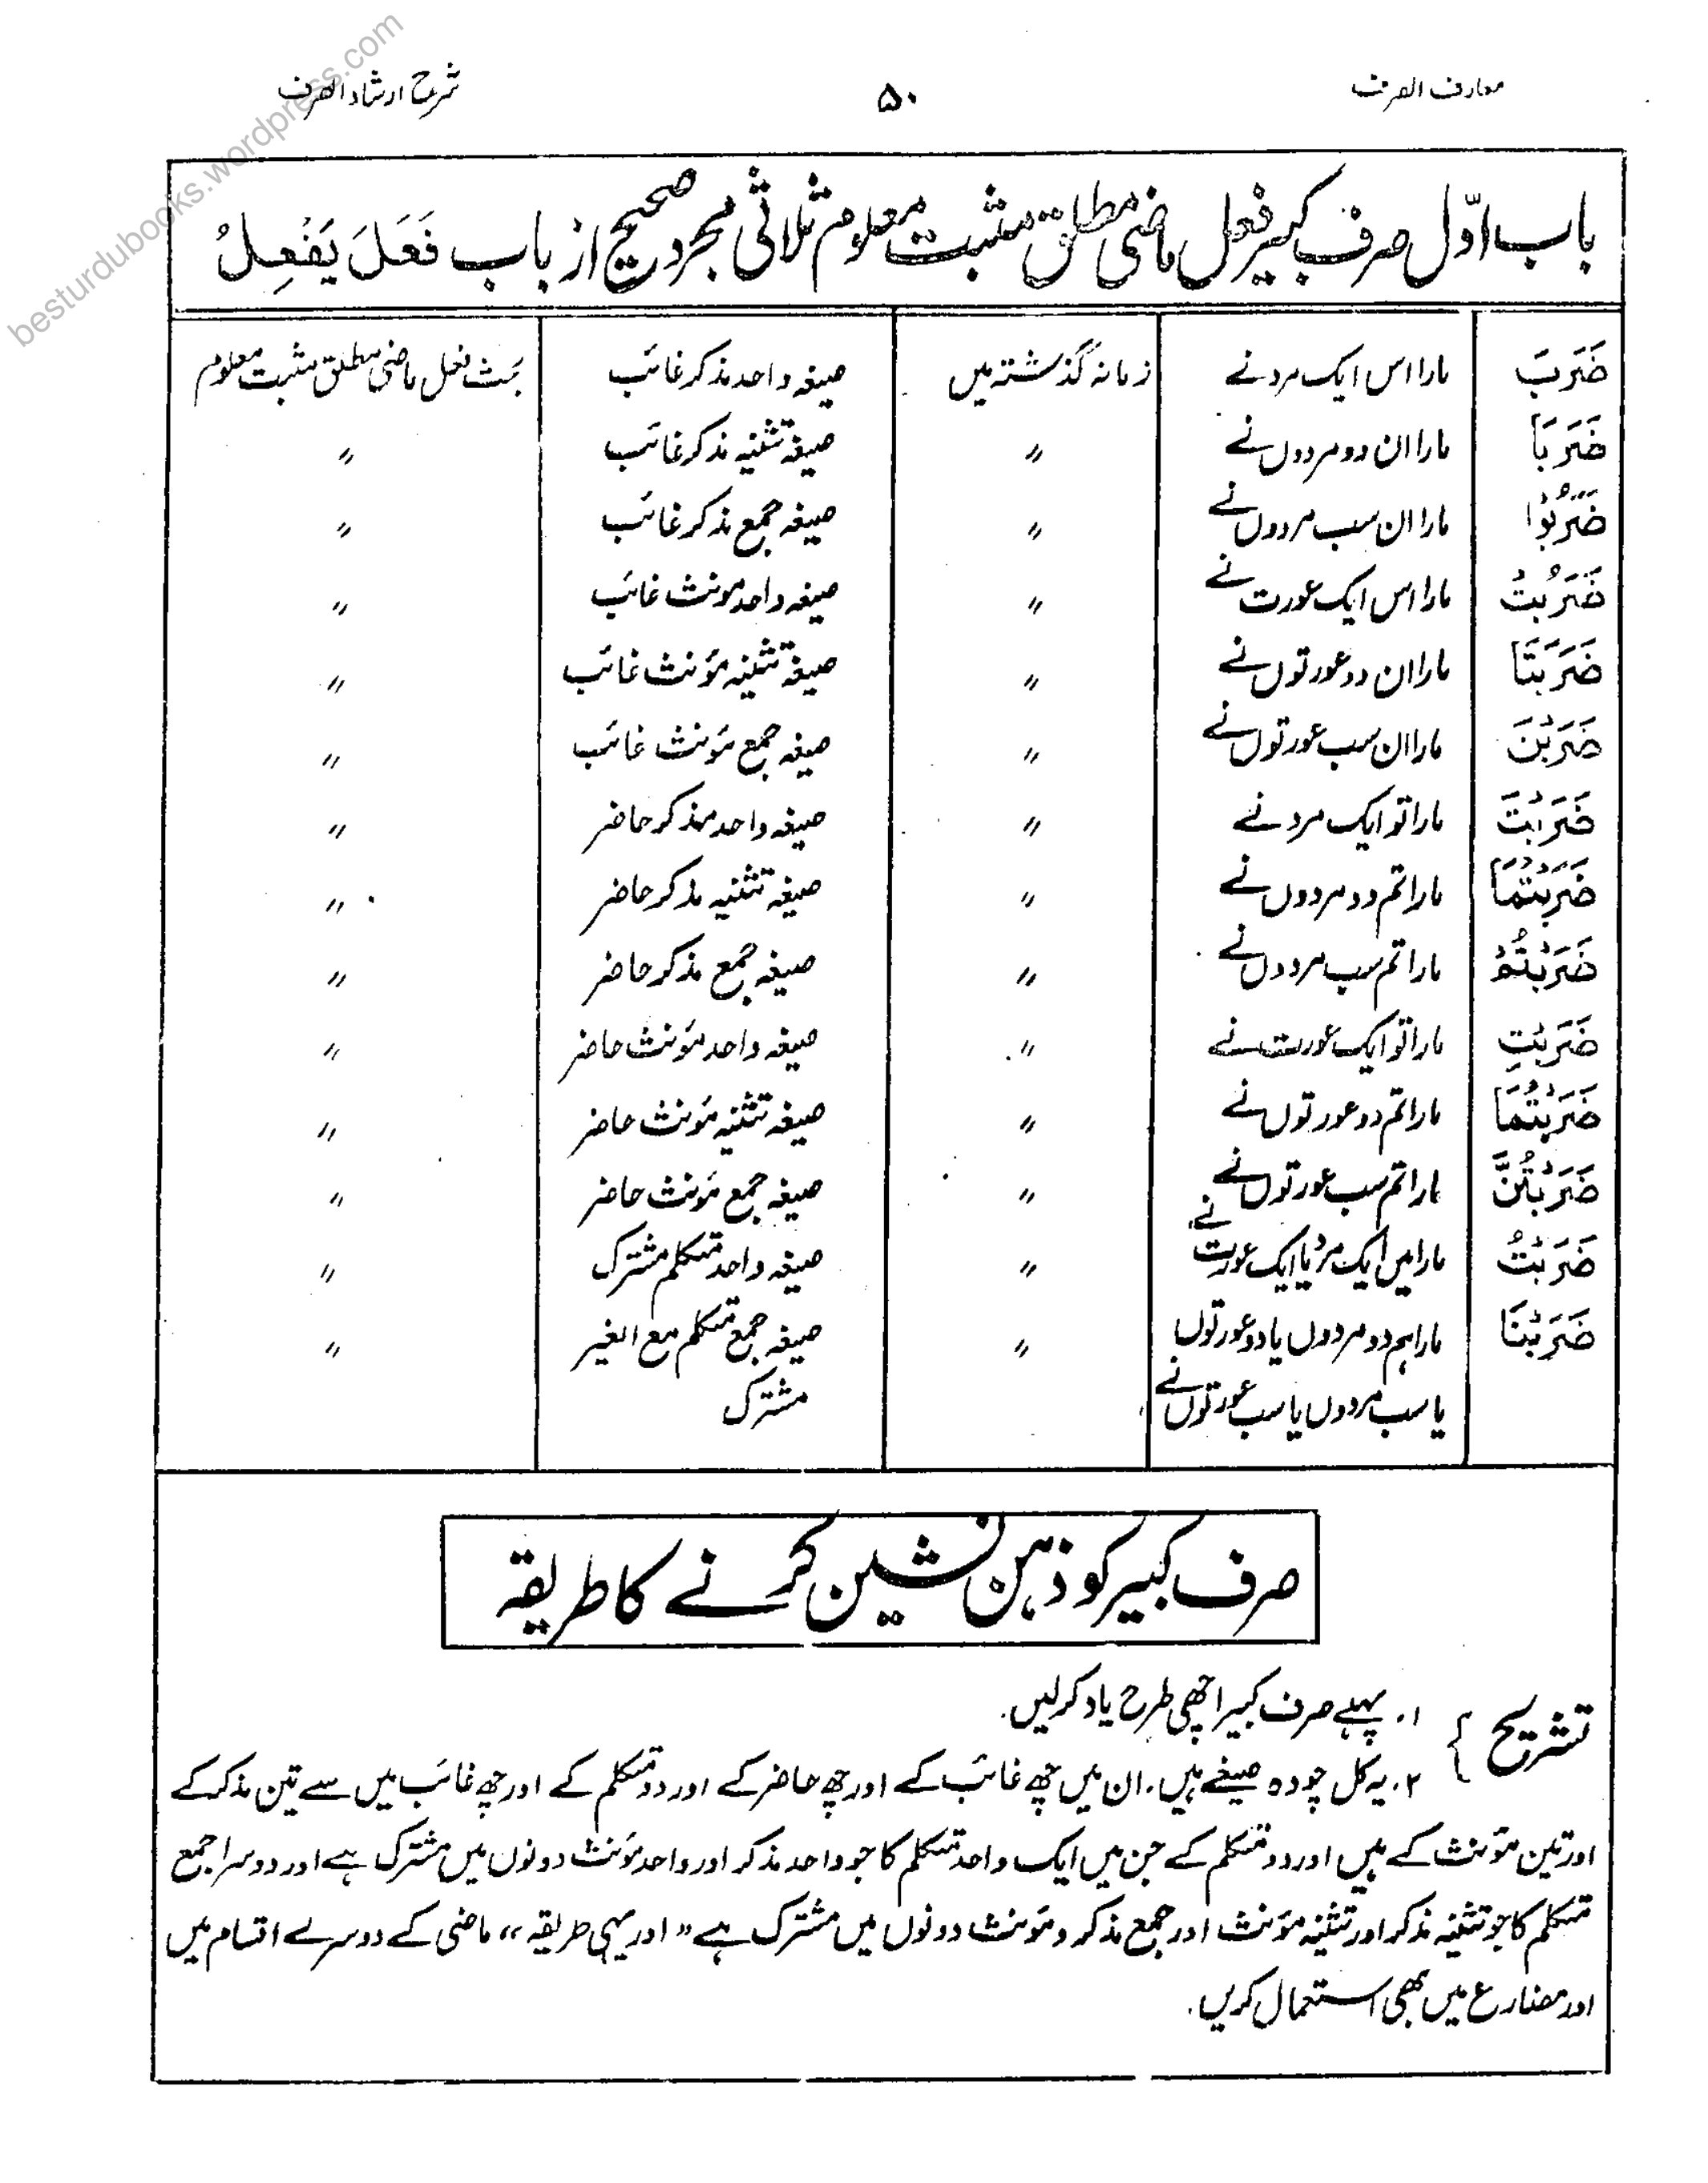 معارف الصرف ۵۰ شرح ارشاد الصرف
باب اوّل صرف کبیر فعل ماضی مطلق مثبت معلوم ثلاثی مجرد صحیح از باب فَعَلَ يَفْعِلُ
ضَرَبَ مارا اس ایک مرد نے زمانہ گذشتہ میں صیغہ واحد مذکر غائب بحث فعل ماضی مطلق مثبت معلوم
ضَرَبَا مارا ان دو مردوں نے 〃 صیغہ تثنیہ مذکر غائب 〃
ضَرَبُوْا مارا ان سب مردوں نے 〃 صیغہ جمع مذکر غائب 〃
ضَرَبَتْ مارا اس ایک عورت نے 〃 صیغہ واحد مونث غائب 〃
ضَرَبَتَا مارا ان دو عورتوں نے 〃 صیغہ تثنیہ مؤنث غائب 〃
ضَرَبْنَ مارا ان سب عورتوں نے 〃 صیغہ جمع مؤنث غائب 〃
ضَرَبْتَ مارا تو ایک مرد نے 〃 صیغہ واحد مذکر حاضر 〃
ضَرَبْتُمَا مارا تم دو مردوں نے 〃 صیغہ تثنیہ مذکر حاضر 〃
ضَرَبْتُمْ مارا تم سب مردوں نے 〃 صیغہ جمع مذکر حاضر 〃
ضَرَبْتِ مارا تو ایک عورت نے 〃 صیغہ واحد مؤنث حاضر 〃
ضَرَبْتُمَا مارا تم دو عورتوں نے 〃 صیغہ تثنیہ مؤنث حاضر 〃
ضَرَبْتُنَّ مارا تم سب عورتوں نے 〃 صیغہ جمع مؤنث حاضر 〃
ضَرَبْتُ مارا میں ایک مرد یا ایک عورت نے 〃 صیغہ واحد متکلم مشترک 〃
ضَرَبْنَا مارا ہم دو مردوں یا دو عورتوں 〃 صیغہ جمع متکلم مع الغیر 〃
یا سب مردوں یا سب عورتوں نے مشترک
صرف کبیر کو ذہن نشین کرنے کا طریقہ
تشریح } ۱۔ پہلے صرف کبیر اچھی طرح یاد کرلیں۔
۲۔ یہ کل چودہ صیغے ہیں۔ ان میں چھ غائب کے اور چھ حاضر کے اور دو متکلم کے اور چھ غائب میں سے تین مذکر کے
اور تین مؤنث کے ہیں اور دو متکلم کے جن میں ایک واحد متکلم کا جو واحد مذکر اور واحد مؤنث دونوں میں مشترک ہے اور دوسرا جمع
متکلم کا جو تثنیہ مذکر اور تثنیہ مؤنث اور جمع مذکر و مؤنث دونوں میں مشترک ہے “اور یہی طریقہ” ماضی کے دوسرے اقسام میں
اور مضارع میں بھی استعمال کریں۔
besturdubooks.wordpress.com